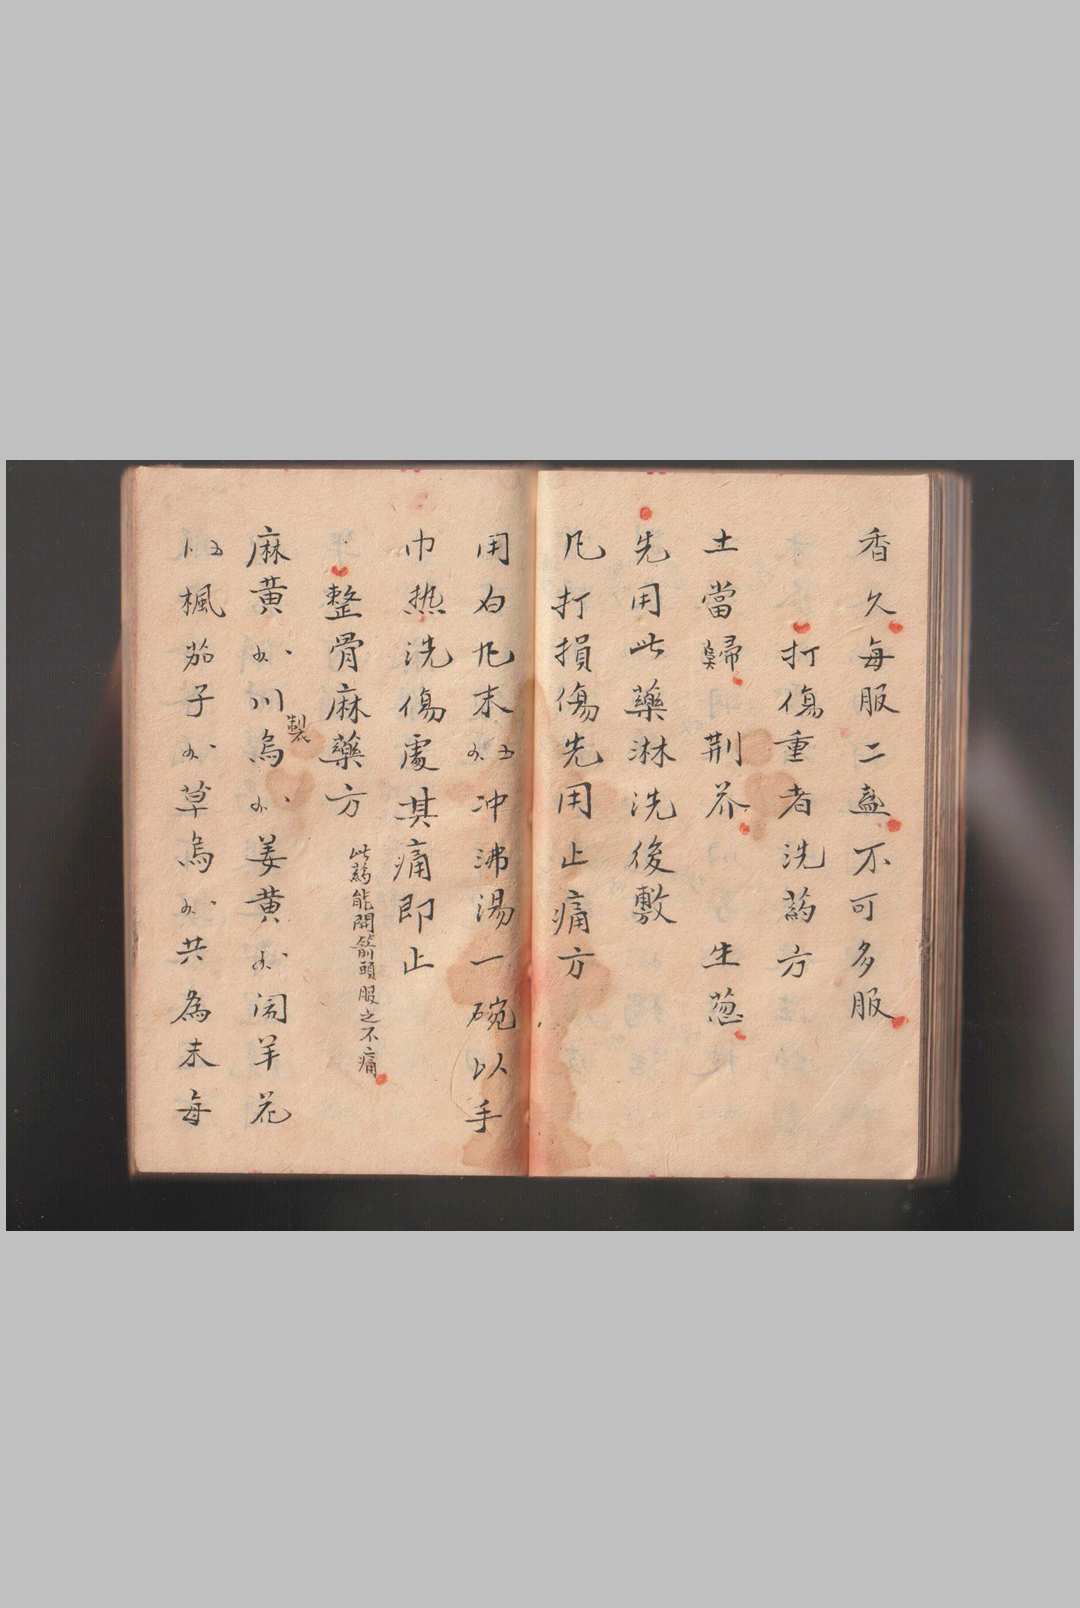 香久每服二盞不可多服
打傷重者洗葯方
土當歸 荆芥 生葱
先用此藥淋洗後敷
凡打損傷先用止痛方
用白凡末 冲沸湯一碗以手
巾热洗傷處其痛即止
整骨麻藥方 此葯能開箭頭服之不痛
麻黄 川烏製 姜黄 闹羊花
楓茄子 草烏 共為末每